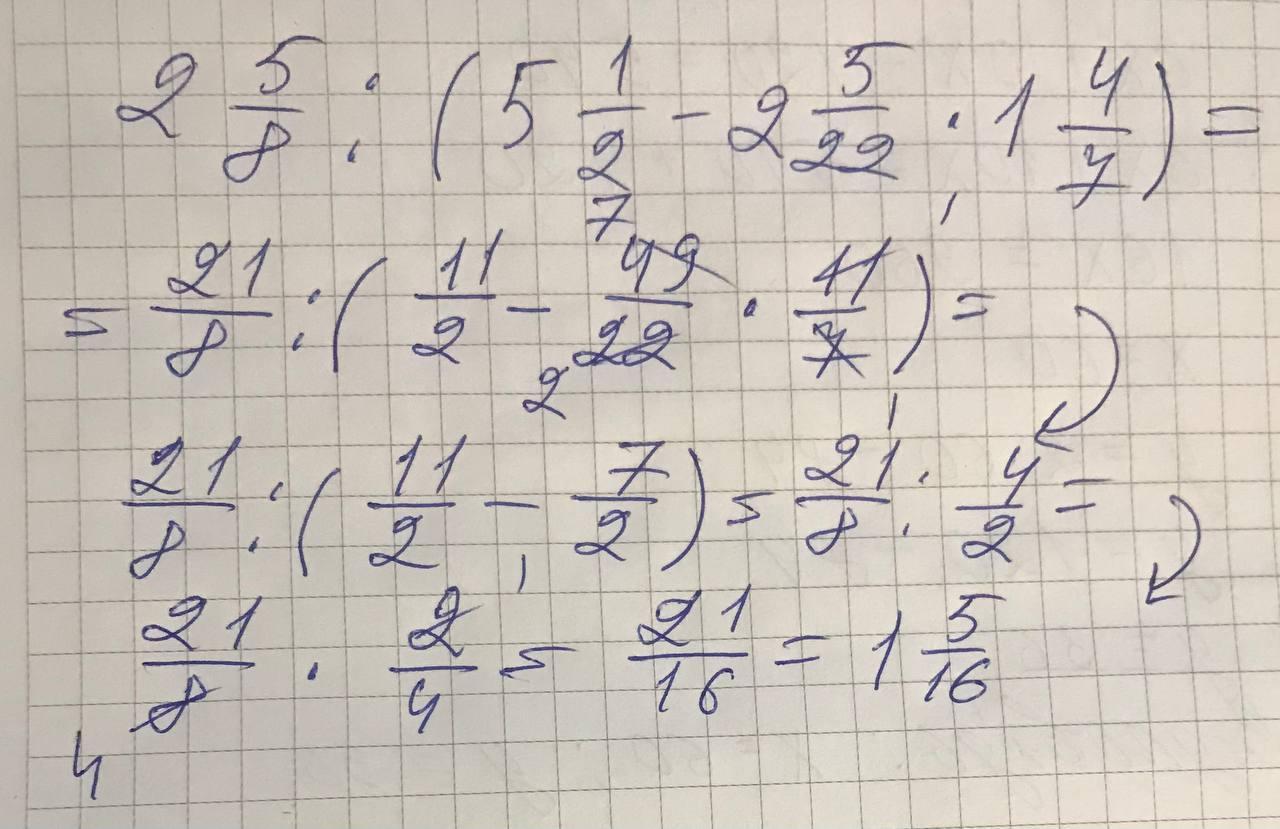 2 5/8 : (5 1/2 - 2 5/22 · 1 4/7) =
= 21/8 : (11/2 - 49/22 · 11/7) =
7 1 2 1
21/8 : (11/2 - 7/2) = 21/8 : 4/2 =
21/8 · 2/4 = 21/16 = 1 5/16
4 1